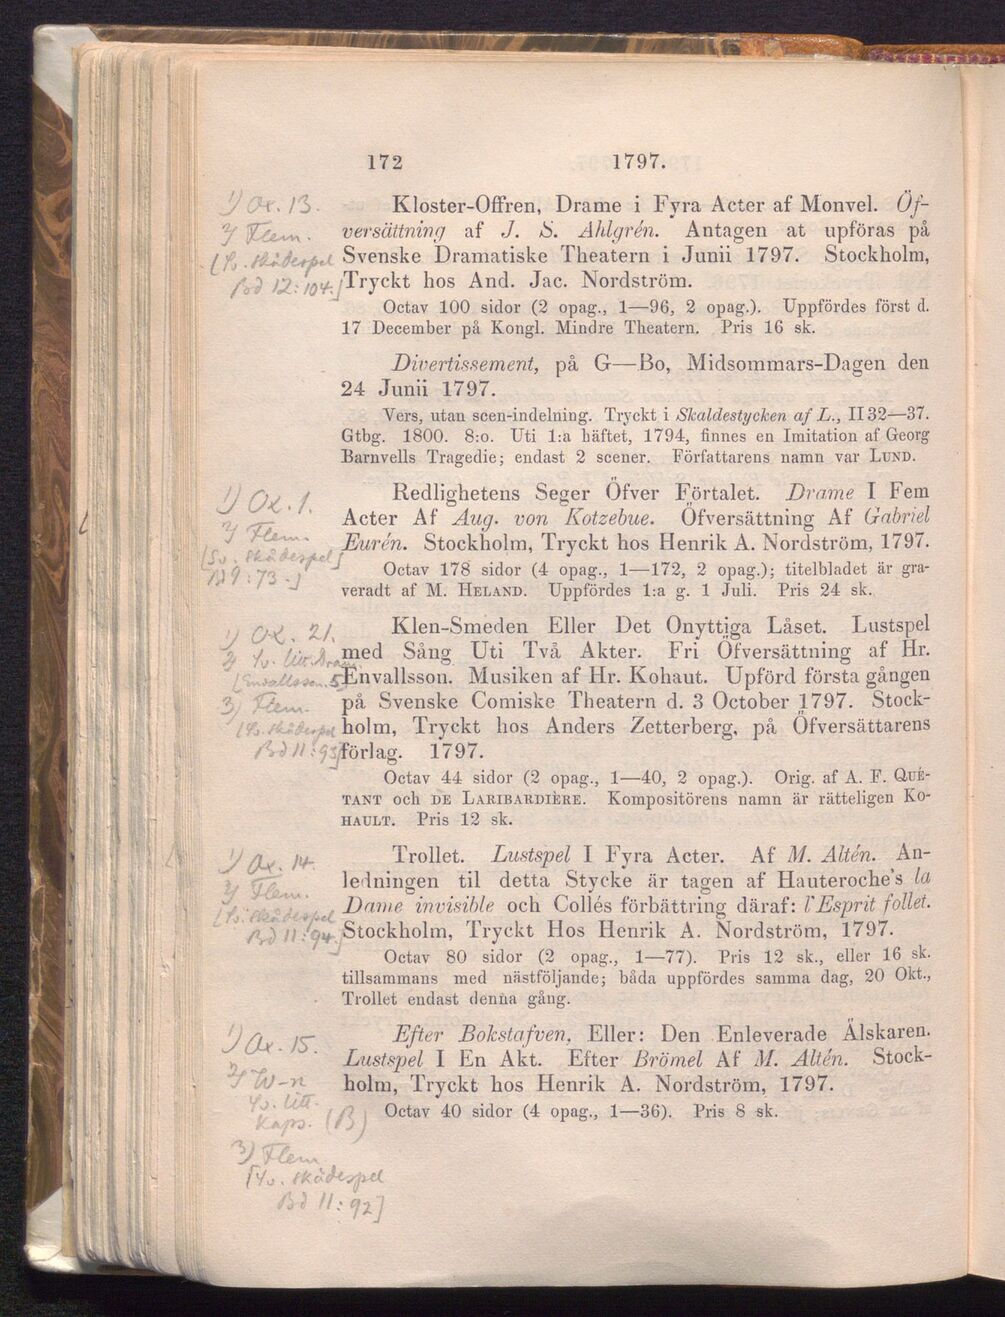 172 1797.
1) Ox. 13.
2) Flem.
[Sv. Skådespel
Bd 12:104.]
Kloster-Offren, Drame i Fyra Acter af Monvel. Öf-
versättning af J. S. Ahlgrén. Antagen at upföras på
Svenske Dramatiske Theatern i Junii 1797. Stockholm,
Tryckt hos And. Jac. Nordström.
Octav 100 sidor (2 opag., 1—96, 2 opag.). Uppfördes först d.
17 December på Kongl. Mindre Theatern. Pris 16 sk.
Divertissement, på G—Bo, Midsommars-Dagen den
24 Junii 1797.
Vers, utan scen-indelning. Tryckt i Skaldestycken af L., II 32—37.
Gtbg. 1800. 8:o. Uti 1:a häftet, 1794, finnes en Imitation af Georg
Barnvells Tragedie; endast 2 scener. Författarens namn var Lund.
1) Ox. 1.
2) Flem.
[Sv. Skådespel
Bd 9:73.]
Redlighetens Seger Öfver Förtalet. Drame I Fem
Acter Af Aug. von Kotzebue. Öfversättning Af Gabriel
Eurén. Stockholm, Tryckt hos Henrik A. Nordström, 1797.
Octav 178 sidor (4 opag., 1—172, 2 opag.); titelbladet är gra-
veradt af M. Heland. Uppfördes 1:a g. 1 Juli. Pris 24 sk.
1) Ox. 21.
2) Sv. litt. Dram.
[Envallsson. 5]
3) Flem.
[Sv. Skådespel
Bd 11:93]
Klen-Smeden Eller Det Onyttiga Låset. Lustspel
med Sång Uti Två Akter. Fri Öfversättning af Hr.
Envallsson. Musiken af Hr. Kohaut. Upförd första gången
på Svenske Comiske Theatern d. 3 October 1797. Stock-
holm, Tryckt hos Anders Zetterberg, på Öfversättarens
förlag. 1797.
Octav 44 sidor (2 opag., 1—40, 2 opag.). Orig. af A. F. Qué-
tant och de Laribardière. Kompositörens namn är rätteligen Ko-
hault. Pris 12 sk.
1) Ox. 14.
2) Flem.
[Sv. Skådespel
Bd 11:94.]
Trollet. Lustspel I Fyra Acter. Af M. Altén. An-
ledningen til detta Stycke är tagen af Hauteroche's la
Dame invisible och Collés förbättring däraf: l'Esprit follet.
Stockholm, Tryckt Hos Henrik A. Nordström, 1797.
Octav 80 sidor (2 opag., 1—77). Pris 12 sk., eller 16 sk.
tillsammans med nästföljande; båda uppfördes samma dag, 20 Okt.,
Trollet endast denna gång.
1) Ox. 15.
2) W-n
Sv. litt.
Kaps. (B)
3) Flem.
[Sv. Skådespel
Bd 11:92]
Efter Bokstafven, Eller: Den Enleverade Älskaren.
Lustspel I En Akt. Efter Brömel Af M. Altén. Stock-
holm, Tryckt hos Henrik A. Nordström, 1797.
Octav 40 sidor (4 opag., 1—36). Pris 8 sk.